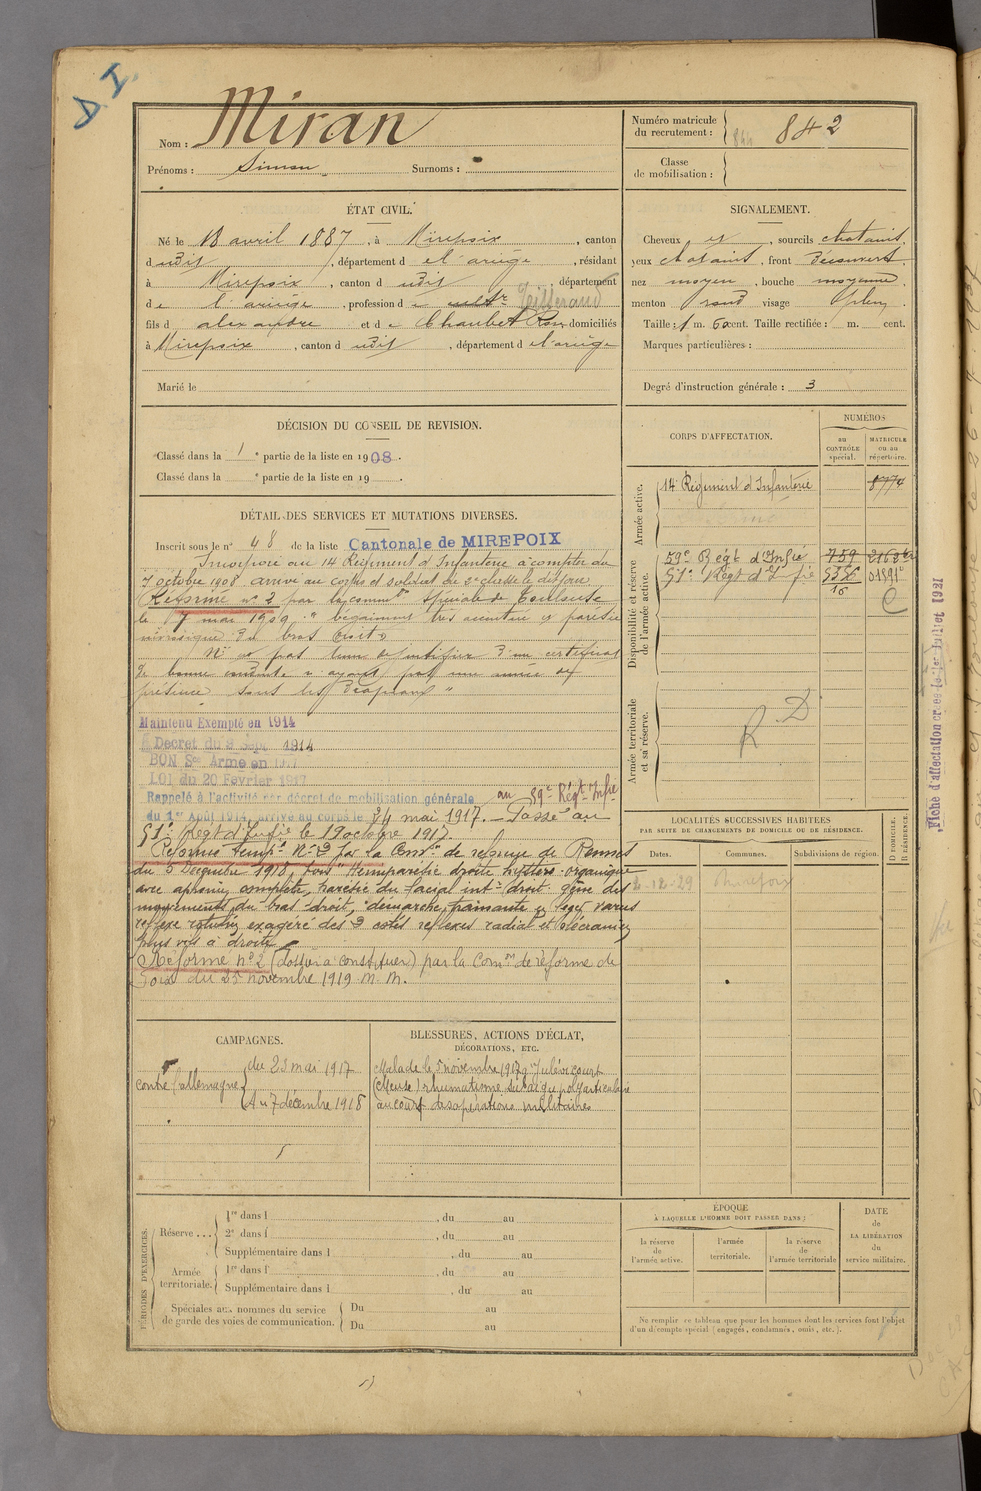 D I.
Nom : Miran
Prénoms : Simon Surnoms :
Numéro matricule
du recrutement : 842
Classe
de mobilisation :
ÉTAT CIVIL.
Né le 18 avril 1887, à Mirepoix, canton
dudit, département de l'ariège, résidant
à Mirepoix, canton dudit département
de l'ariège, profession de Tisserand
fils d'alexandre et de Chaubet domiciliés
à Mirepoix, canton dudit, département de l'ariège
Marié le
SIGNALEMENT.
Cheveux et, sourcils chatains,
yeux chatains, front Découvert
nez moyen, bouche moyenne
menton rond visage plein.
Taille : 1 m. 60 cent. Taille rectifiée : m. cent.
Marques particulières :
Degré d'instruction générale : 3
DÉCISION DU CONSEIL DE REVISION.
Classé dans la 1e partie de la liste en 1908.
Classé dans la e partie de la liste en 19 .
CORPS D'AFFECTATION.
NUMÉROS
au
CONTRÔLE
spécial.
MATRICULE
ou au
répertoire.
Armée active.
14 Régiment d'Infanterie 8774
Disponibilité et réserve
de l'armée active.
59e Régt d'Infie 759
51e Régt d'Infie
Armée territoriale
et sa réserve.
R D
Fiche d'affectation créée le 1er Juillet 1921
DÉTAIL DES SERVICES ET MUTATIONS DIVERSES.
Inscrit sous le n° 48 de la liste Cantonale de MIREPOIX
Incorporé au 14 Régiment d'Infanterie à compter du
7 octobre 1908 arrivé au corps et soldat de 2e classe le dit jour
Réformé n° 2 par la common spéciale de Toulouse
le 7 mai 1909 "bégaiement très accentué et parésie
du bras droit"
N'a pas tenu de certificat
de bonne conduite n'ayant pas une année de
présence sous les drapeaux "
Maintenu Exempté en 1914
Décret du 9 Sept 1914
BON Sce Armé en 1917
LOI du 20 Février 1917
Rappelé à l'activité par décret de mobilisation générale au 59e Régt Infie
du 1er Août 1914, arrivé au corps le 24 mai 1917. Passé au
51e Régt d'Infie le 19 octobre 1917.
Réformé tempre N° 2 par la Comon de réforme de Rennes
du 5 Décembre 1918, pour "Hemiparésie droite hystéro-organique
avec aphonie complète, parésie du facial inf. droit. Gêne des
mouvements du bras droit, démarche trainante
reflexe rotulien exagéré des 2 cotés reflexes radial et olécranien
plus vifs à droite
Réformé n° 2 (dossier à constituer) par la Comon de réforme de
Foix du 25 novembre 1919 M.M.
LOCALITÉS SUCCESSIVES HABITÉES
PAR SUITE DE CHANGEMENTS DE DOMICILE OU DE RÉSIDENCE.
Dates. Communes. Subdivisions de région. D DOMICILE. R RÉSIDENCE.
12-29 Mirepoix
CAMPAGNES.
contre l'allemagne
du 23 mai 1917
Au 7 décembre 1918
BLESSURES, ACTIONS D'ÉCLAT,
DÉCORATIONS, ETC.
Malade le 5 novembre 1917 à Julévécourt
(Meuse) rhumatisme subaigu polyarticulaire
au cours des opérations militaires
PÉRIODES D'EXERCICES.
Réserve ...
1re dans l , du au
2e dans l , du au
Supplémentaire dans l , du au
Armée
territoriale.
1re dans l , du au
Supplémentaire dans l , du au
Spéciales aux hommes du service
de garde des voies de communication.
Du au
Du au
ÉPOQUE
À LAQUELLE L'HOMME DOIT PASSER DANS :
la réserve
de
l'armée active.
l'armée
territoriale.
la réserve
de
l'armée territoriale
DATE
de
LA LIBÉRATION
du
service militaire.
Ne remplir ce tableau que pour les hommes dont les services font l'objet
d'un décompte spécial (engagés, condamnés, omis, etc.).